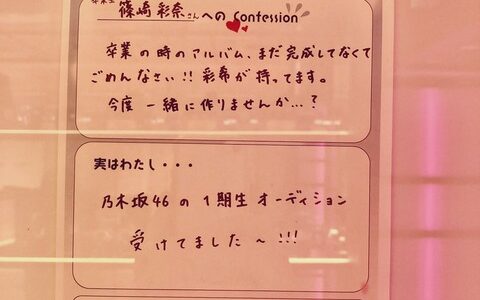 卒業生
篠崎 彩奈さんへの Confession
卒業の時のアルバム、まだ完成してなくて
ごめんなさい!! 彩希が持ってます。
今度 一緒に作りませんか…?
実はわたし・・・
乃木坂46の1期生オーディション
受けてました〜!!!